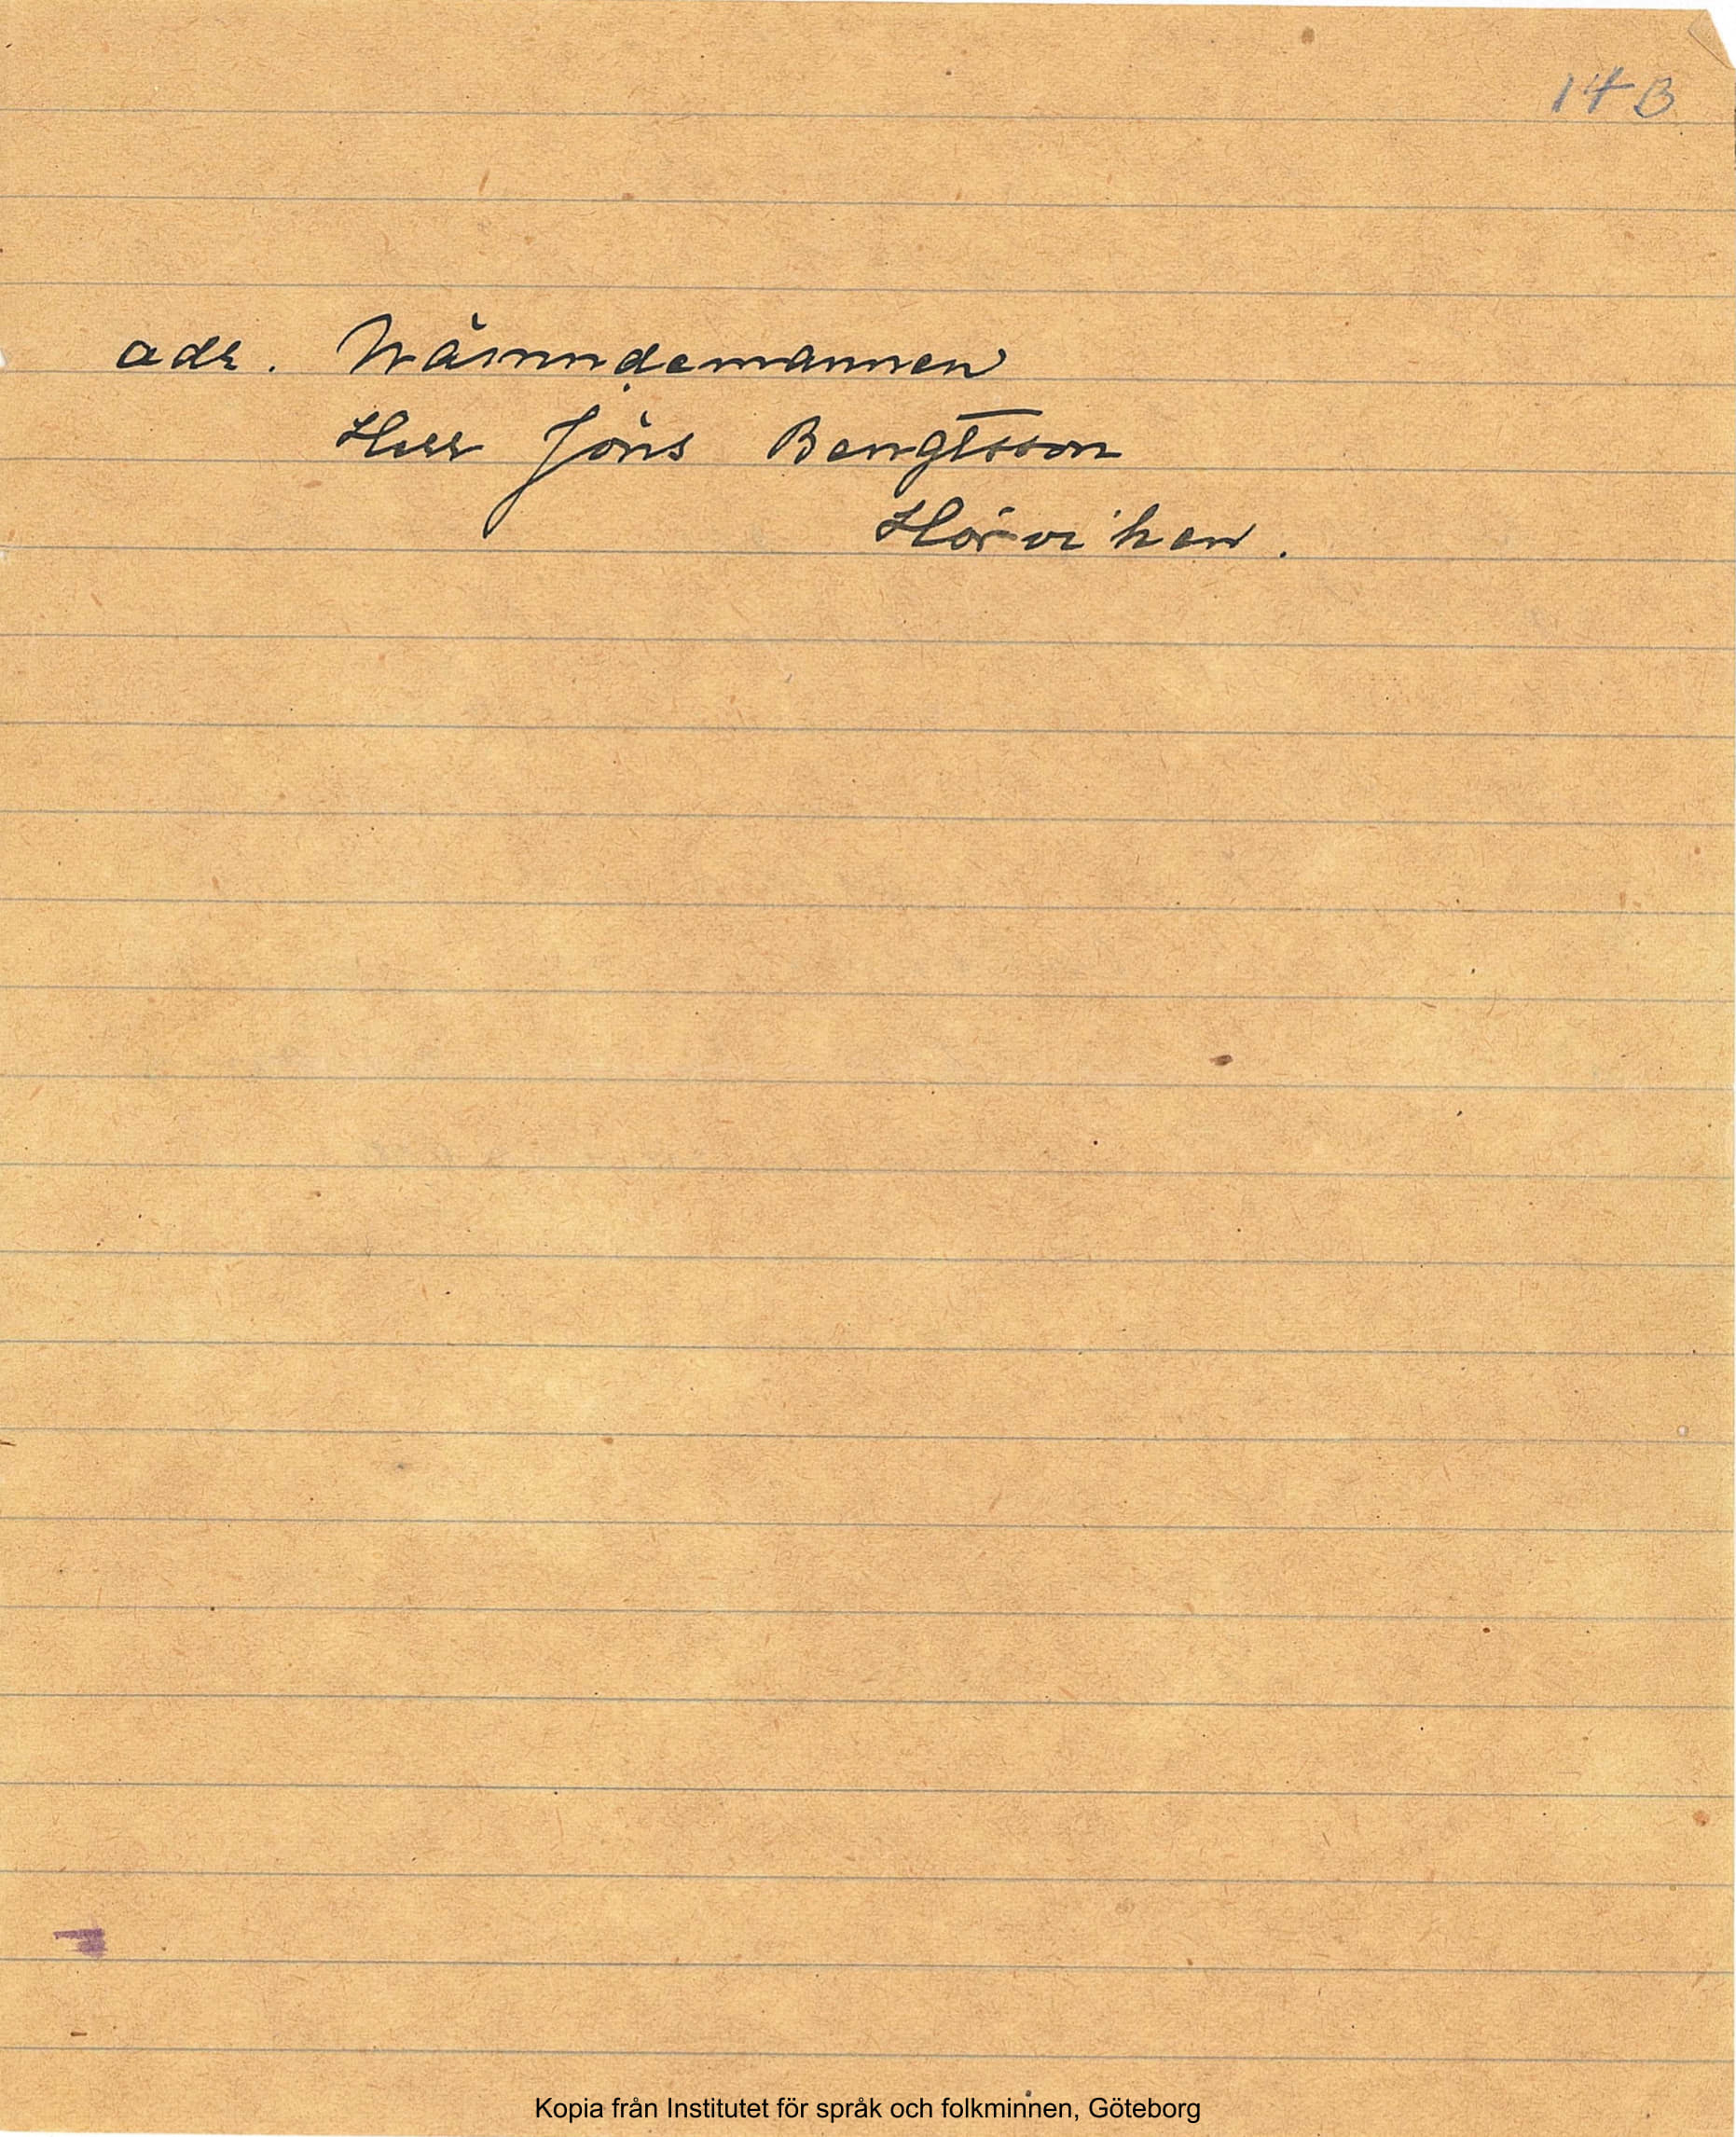 14 B
adr. Nämndemannen
Herr Jöns Bengtsson
Hörviken.
Kopia från Institutet för språk och folkminnen, Göteborg